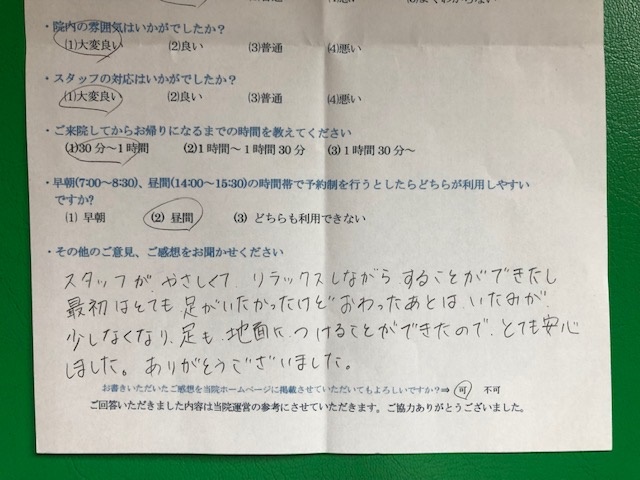 ・院内の雰囲気はいかがでしたか？
(1)大変良い (2)良い (3)普通 (4)悪い
・スタッフの対応はいかがでしたか？
(1)大変良い (2)良い (3)普通 (4)悪い
・ご来院してからお帰りになるまでの時間を教えてください
(1)30分～1時間 (2)1時間～1時間30分 (3)1時間30分～
・早朝(7:00～8:30)、昼間(14:00～15:30)の時間帯で予約制を行うとしたらどちらが利用しやすい
ですか?
(1) 早朝 (2) 昼間 (3) どちらも利用できない
・その他のご意見、ご感想をお聞かせください
スタッフが やさしくて、リラックスしながら することができたし
最初はとても 足がいたかったけど おわったあとは、いたみが
少しなくなり、足も、地面に つけることができたので、とても安心
しました。ありがとうございました。
お書きいただいたご感想を当院ホームページに掲載させていただいてもよろしいですか？⇒ 可 不可
ご回答いただきました内容は当院運営の参考にさせていただきます。ご協力ありがとうございました。